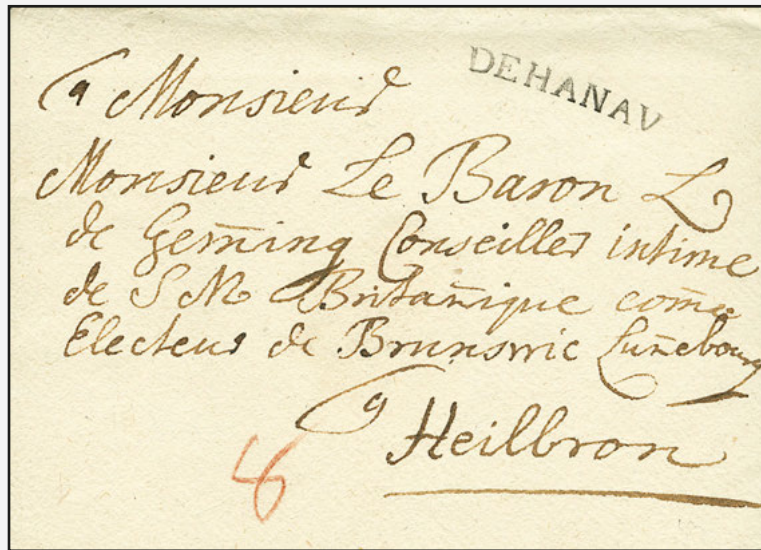 DEHANAV
a Monsieur
Monsieur Le Baron L
de Gem̄ing Conseiller intime
de S M Britan̄ique com̄e
Electeur de Brunswic Lun̄ebourg
a
Heilbron